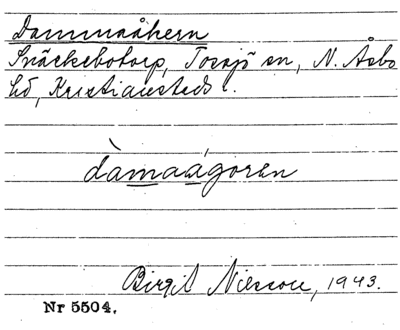 Dammaåkern
Snäckebotorp, Tossjö sn, N. Åsbo
hd, Kristianstads l.
dàmaágorɘn
Birgit Nilsson, 1943.
Nr 5504.